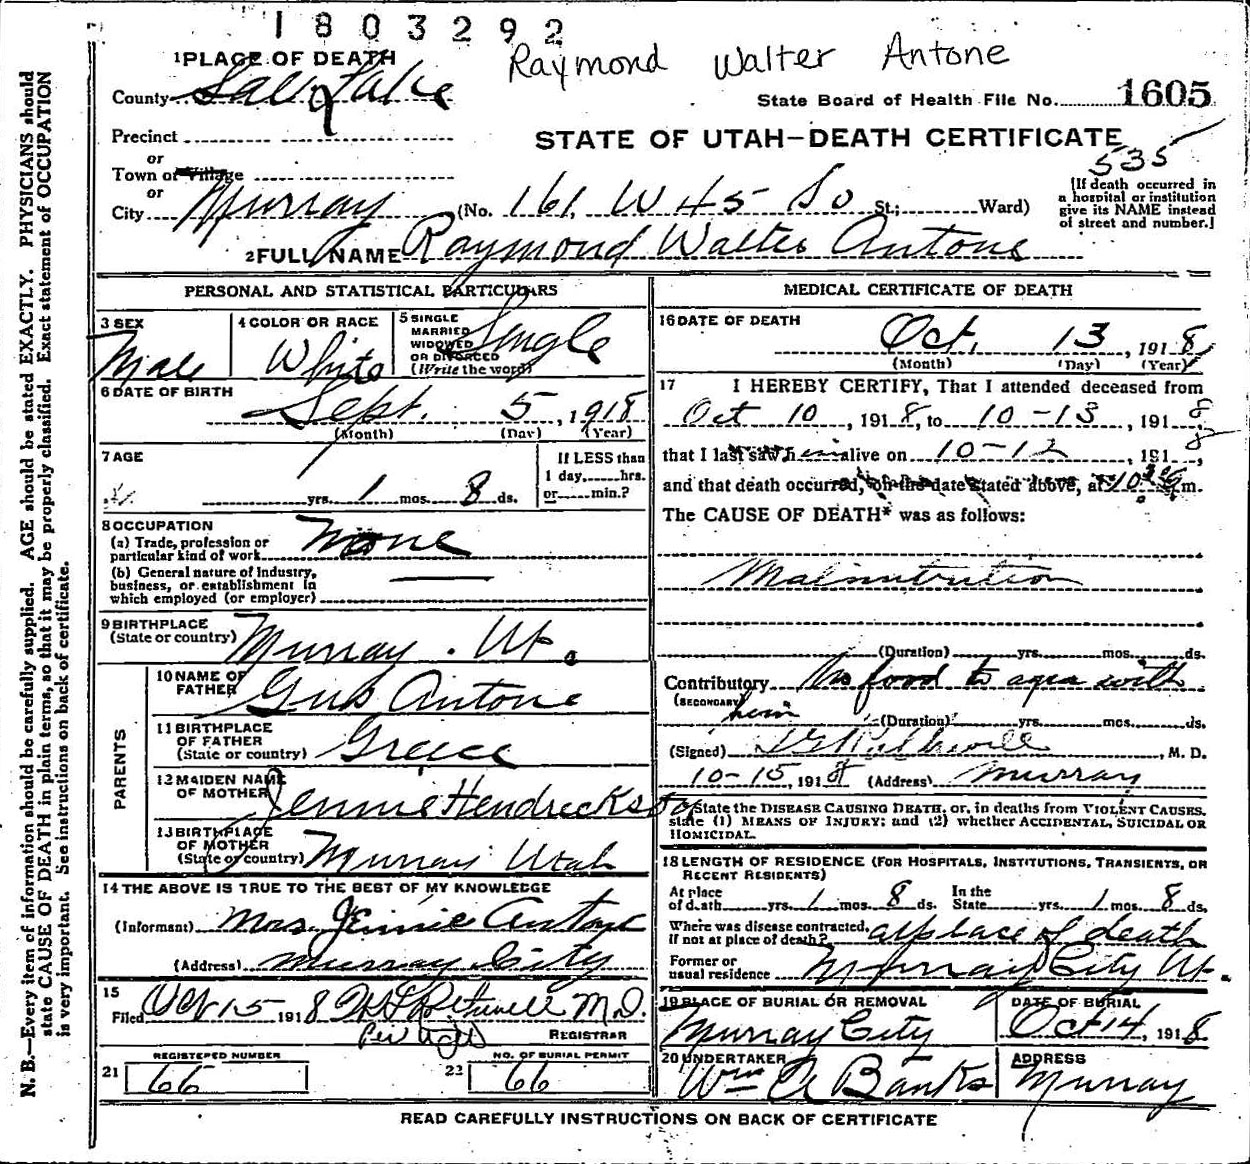 1803292
Raymond Walter Antone
1 PLACE OF DEATH
County Salt Lake
State Board of Health File No. 1605
Precinct
STATE OF UTAH—DEATH CERTIFICATE
535
or
Town or Village
or
City Murray (No. 161, W 45 So St.; Ward)
[If death occurred in a hospital or institution give its NAME instead of street and number.]
2 FULL NAME Raymond Walter Antone
PERSONAL AND STATISTICAL PARTICULARS
3 SEX
Male
4 COLOR OR RACE
White
5 SINGLE
MARRIED
WIDOWED
OR DIVORCED
(Write the word)
Single
6 DATE OF BIRTH
Sept. 5, 1918
(Month) (Day) (Year)
7 AGE
yrs. 1 mos. 8 ds.
If LESS than
1 day, hrs.
or min.?
8 OCCUPATION
(a) Trade, profession or
particular kind of work None
(b) General nature of Industry,
business, or establishment in
which employed (or employer)
9 BIRTHPLACE
(State or country) Murray. Ut.
PARENTS
10 NAME OF
FATHER Gus Antone
11 BIRTHPLACE
OF FATHER
(State or country) Greece
12 MAIDEN NAME
OF MOTHER Jennie Hendrickson
13 BIRTHPLACE
OF MOTHER
(State or country) Murray Utah
14 THE ABOVE IS TRUE TO THE BEST OF MY KNOWLEDGE
(Informant) Mrs. Jennie Antone
(Address) Murray City
15
Filed Oct 15 1918 M.D.
Per
REGISTRAR
REGISTERED NUMBER
21 66
NO. OF BURIAL PERMIT
22 66
MEDICAL CERTIFICATE OF DEATH
16 DATE OF DEATH
Oct. 13, 1918
(Month) (Day) (Year)
17 I HEREBY CERTIFY, That I attended deceased from
Oct 10, 1918, to 10-13, 1918
that I last saw him alive on 10-12, 1918,
and that death occurred, on the date stated above, at 10 m.
The CAUSE OF DEATH* was as follows:
Malnutrition
(Duration) yrs. mos. ds.
Contributory No food to agree with
(SECONDARY) him
(Duration) yrs. mos. ds.
(Signed) M. D.
10-15, 1918 (Address) Murray
*State the DISEASE CAUSING DEATH, or, in deaths from VIOLENT CAUSES,
state (1) MEANS OF INJURY; and (2) whether ACCIDENTAL, SUICIDAL OR
HOMICIDAL.
18 LENGTH OF RESIDENCE (FOR HOSPITALS, INSTITUTIONS, TRANSIENTS, OR
RECENT RESIDENTS)
At place
of death yrs. 1 mos. 8 ds. In the
State yrs. 1 mos. 8 ds.
Where was disease contracted,
if not at place of death? at place of death
Former or
usual residence Murray City Ut.
19 PLACE OF BURIAL OR REMOVAL
Murray City
DATE OF BURIAL
Oct 14, 1918
20 UNDERTAKER
Wm A Banks
ADDRESS
Murray
READ CAREFULLY INSTRUCTIONS ON BACK OF CERTIFICATE
N. B.—Every item of information should be carefully supplied. AGE should be stated EXACTLY. PHYSICIANS should
state CAUSE OF DEATH in plain terms, so that it may be properly classified. Exact statement of OCCUPATION
is very important. See instructions on back of certificate.